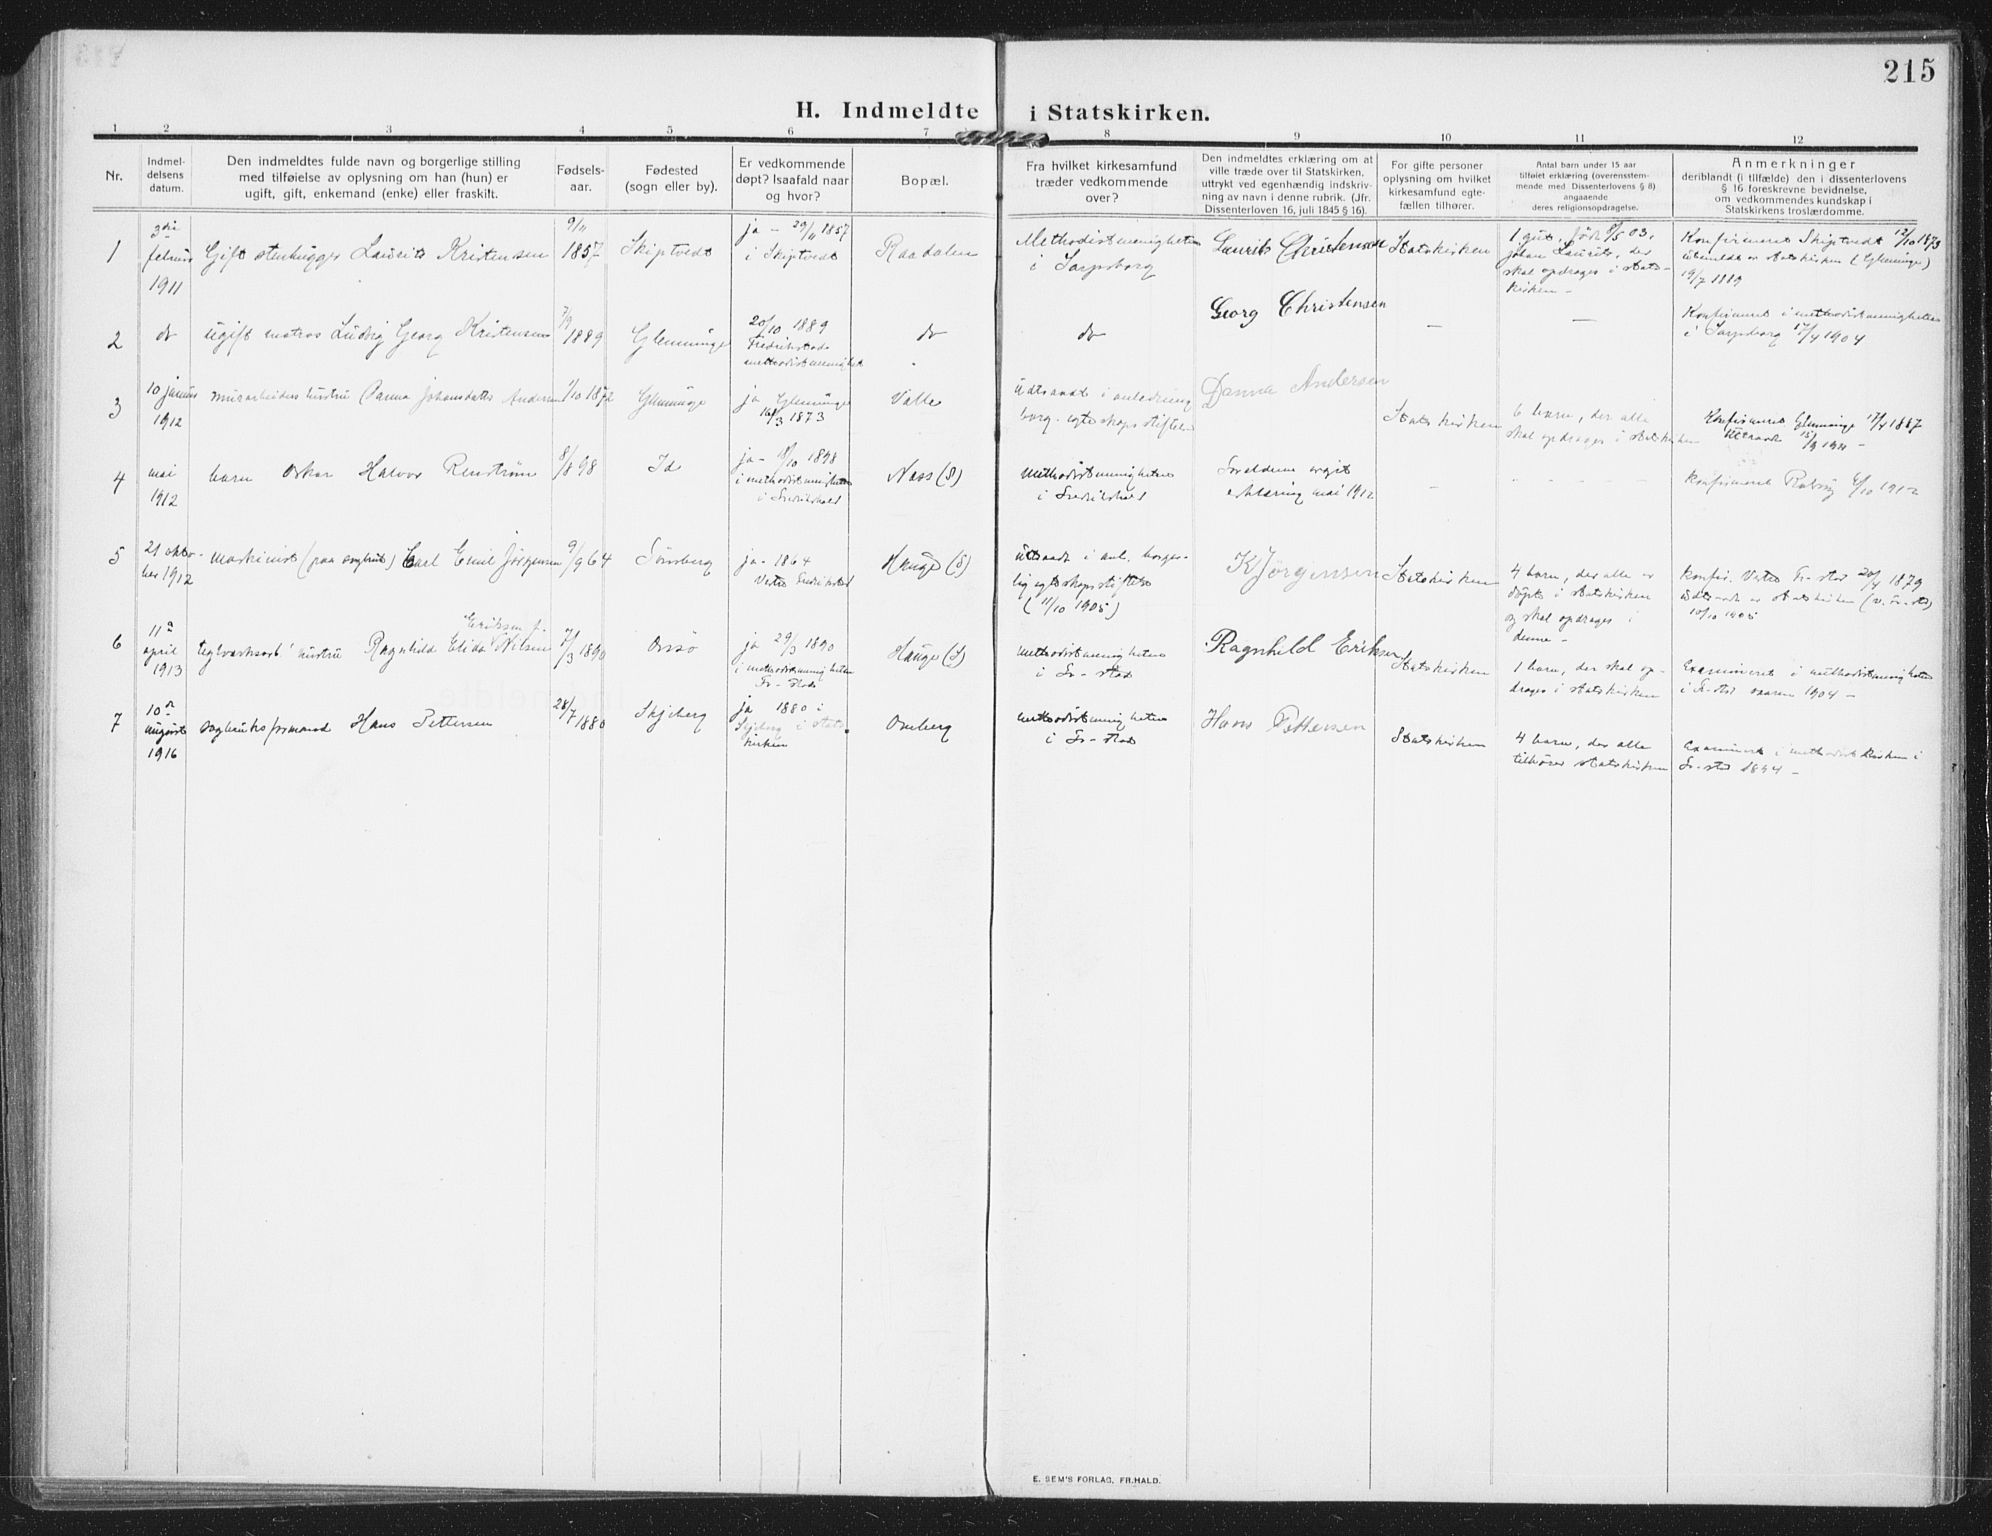 215
H. Indmeldte i Statskirken.
1 2 3 4 5 6 7 8 9 10 11 12
Nr.
Indmel-
delsens
datum.
Den indmeldtes fulde navn og borgerlige stilling
med tilføielse av oplysning om han (hun) er
ugift, gift, enkemand (enke) eller fraskilt.
Fødsels-
aar.
Fødested
(sogn eller by).
Er vedkommende
døpt? Isaafald naar
og hvor?
Bopæl.
Fra hvilket kirkesamfund
træder vedkommende
over?
Den indmeldtes erklæring om at
ville træde over til Statskirken,
uttrykt ved egenhændig indskriv-
ning av navn i denne rubrik. (Jfr.
Dissenterloven 16. juli 1845 § 16).
For gifte personer
oplysning om hvilket
kirkesamfund egte-
fællen tilhører.
Antal barn under 15 aar
tilføiet erklæring (overensstem-
mende med Dissenterlovens § 8)
angaaende
deres religionsopdragelse.
Anmerkninger
deriblandt (i tilfælde) den i dissenterlovens
§ 16 foreskrevne bevidnelse,
om vedkommendes kundskap i
Statskirkens troslærdomme.
1
3die
februar
1911
Gift stenhugger Laurits Kristensen
9/11
1857
Skiptvedt
ja - 29/11 1857
i Skiptvedt
Raadalen
Methodistmenigheten
i Sarpsborg
Laurits Christensen
Statskirken
1 gut, født 8/5 03,
Johan Laurits, der
skal opdrages i Stats-
kirken -
Konfirmeret Skiptvedt 12/10 1873
utmeldt av Statskirken (Glemminge)
19/7 1889
2
do
ugift matros Ludvig Georg Kristensen
7/9
1889
Glemminge
20/10 1889
Fredrikstads
methodistmenighet
do
do
Georg Christensen
-
-
Konfirmeret i methodistmenigheten
i Sarpsborg 17/4 1904
3
10 januar
1912
murarbeiders hustru Danna Johansdatter Andersen
1/10 1872
Glemminge
ja Glemminge
16/3 1873
Valle
Udtraadt i anledning
borg. egteskapsstiftelse
Danna Andersen
Statskirken
6 barn, der alle
skal opdrages i statskirken
Konfirmeret Glemminge 17/4 1887
4
mai
1912
barn Oskar Halvor Renström
8/8 98
Id
ja - 9/10 1898
i methodistmenigheten
i Fredrikshald
Næss (S)
Methodistmenigheten
i Fredrikshald
Forældrene avgit
erklæring mai 1912
-
- - - -
konfirmeret Rakvåg 6/10 1912
5
21 okto-
ber 1912
maskinist (paa sagbruk) Carl Emil Jörgensen
9/9 64
Tönsberg
ja - 1864
Vestre Fredrikstad
Hauge (S)
Udtraadt i anl. borger-
lig egteskapsstiftelse
(11/10 1905)
K Jörgensen
Statskirken
4 barn, der alle er
døpte i statskirken
og skal opdrages i
denne -
Konfir. Vestre Fr-stad 20/4 1879
udtraadt av statskirken (v. Fr-stad)
10/10 1905
6
11a
april
1913
teglverksarb. hustru Ragnhild Elida Eriksen f. Nilsen
7/3 1890
Onsö
ja 29/3 1890
i methodistmenigheten
Fr-stad
Hauge (S)
methodistmenigheten
i Fr-stad
Ragnhild Eriksen
Statskirken
1 barn, der skal op-
drages i statskirken
Examineret i methodistmenigheten
i Fr-stad vaaren 1904 -
7
10a
august
1916
sagbruksformand Hans Pettersen
28/7 1880
Skjeberg
ja 1880 i
Skjeberg i stats-
kirken
Omberg
methodistmenigheten
i Fr-stad
Hans Pettersen
Statskirken
4 barn, der alle
tilhører statskirken
Examineret i methodistkirken i
Fr-stad 1894 -
E. SEM'S FORLAG, FR.HALD.